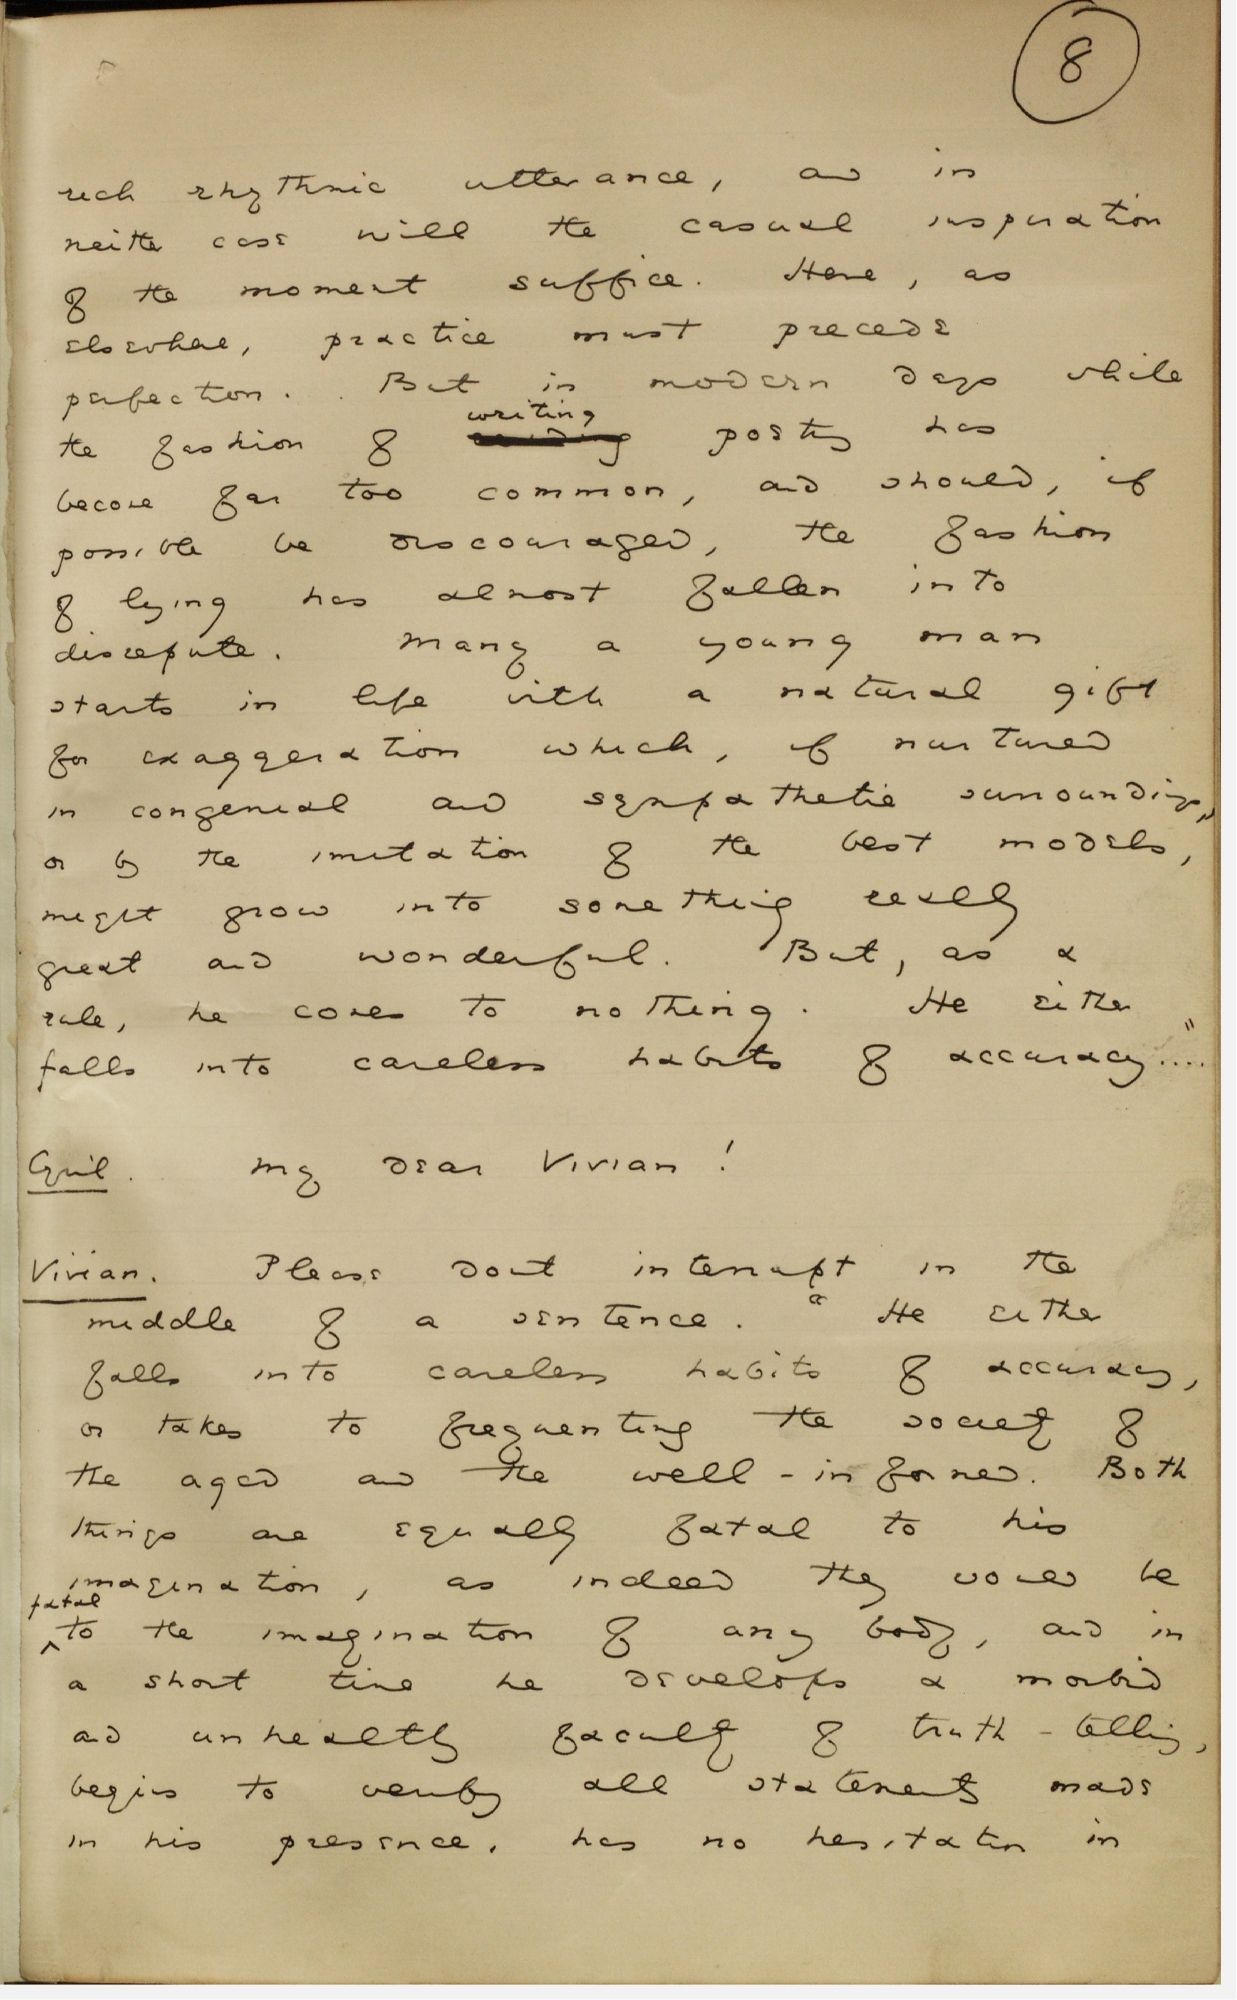 8
rich rhythmic utterance, and in
neither case will the casual inspiration
of the moment suffice. Here, as
elsewhere, practice must precede
perfection. But in modern days while
writing
the fashion of poetry has
become far too common, and should, if
possible be discouraged, the fashion
of lying has almost fallen into
disrepute. Many a young man
starts in life with a natural gift
for exaggeration which, if nurtured
in congenial and sympathetic surroundings,
or by the imitation of the best models,
might grow into something really
great and wonderful. But, as a
rule, he comes to nothing. He either
falls into careless habits of accuracy...."
Cyril. My dear Vivian!
Vivian. Please dont interrupt in the
middle of a sentence. "He either
falls into careless habits of accuracy,
or takes to frequenting the society of
the aged and the well-informed. Both
things are equally fatal to his
imagination, as indeed they would be
fatal
to the imagination of any body, and in
a short time he develops a morbid
and unhealthy faculty of truth-telling,
begins to verify all statements made
in his presence, has no hesitation in